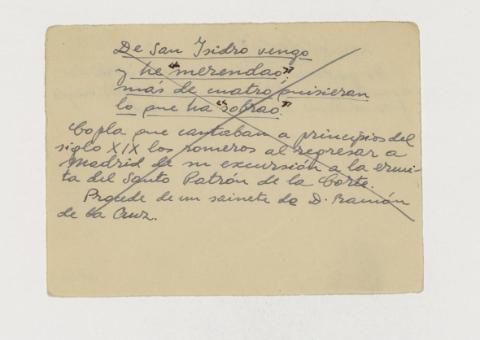 De San Isidro vengo
y he "merendao"
más de cuatro quisieran
lo que ha "sobrao".
Copla que cantaban a principios del
siglo XIX los romeros al regresar a
Madrid de su excursión a la ermi-
ta del Santo Patrón de la Corte.
Procede de un sainete de D. Ramón
de la Cruz.